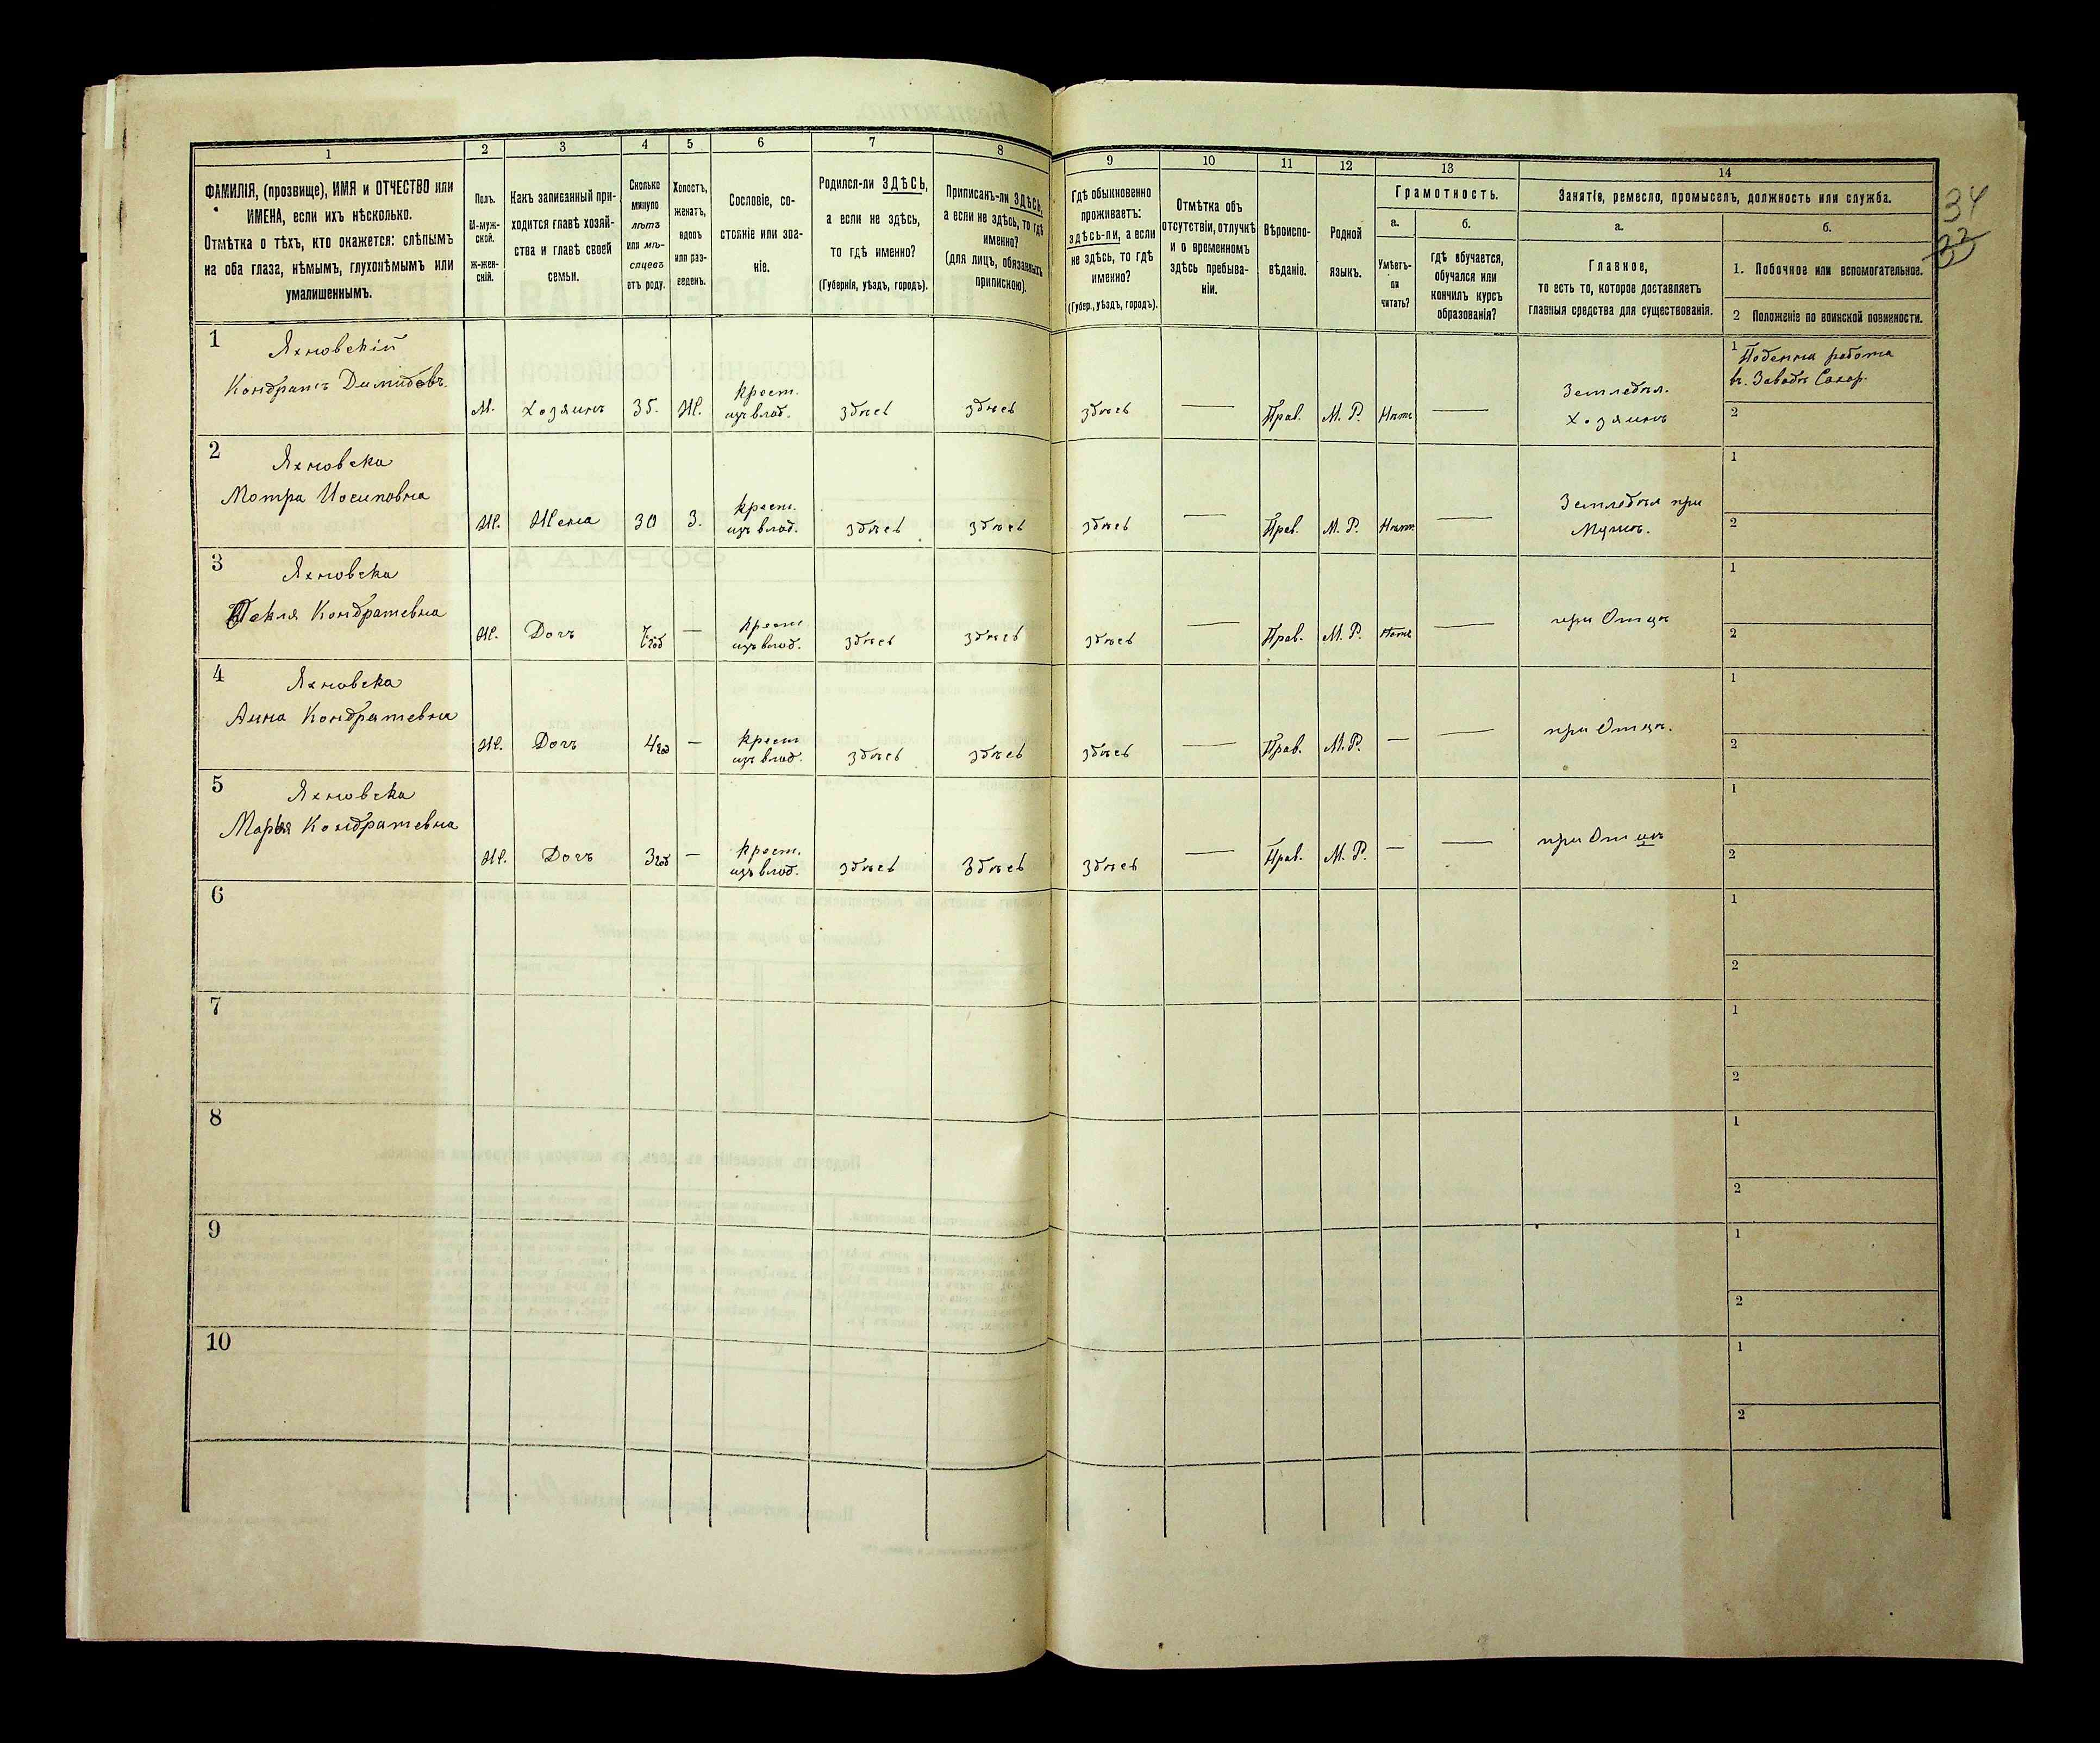 1
ФАМИЛІЯ, (прозвище), ИМЯ и ОТЧЕСТВО или
ИМЕНА, если ихъ нѣсколько.
Отмѣтка о тѣхъ, кто окажется: слѣпымъ
на оба глаза, нѣмымъ, глухонѣмымъ или
умалишеннымъ.
2
Полъ.
М-муж-
ской.
Ж-жен-
скій.
3
Какъ записанный при-
ходится главѣ хозяй-
ства и главѣ своей
семьи.
4
Сколько
минуло
лѣтъ
или мѣ-
сяцевъ
отъ роду.
5
Холостъ,
женатъ,
вдовъ
или раз-
веденъ.
6
Сословіе, со-
стояніе или зва-
ніе.
7
Родился-ли ЗДѢСЬ,
а если не здѣсь,
то гдѣ именно?
(Губернія, уѣздъ, городъ).
8
Приписанъ-ли ЗДѢСЬ,
а если не здѣсь, то гдѣ
именно?
(для лицъ, обязанныхъ
припискою).
9
Гдѣ обыкновенно
проживаетъ:
здѣсь-ли, а если
не здѣсь, то гдѣ
именно?
(Губер., уѣздъ, городъ).
10
Отмѣтка объ
отсутствіи, отлучкѣ
и о временномъ
здѣсь пребыва-
ніи.
11
Вѣроиспо-
вѣданіе.
12
Родной
языкъ.
13
Грамотность.
а.
Умѣетъ-
ли
читать?
б.
гдѣ обучается,
обучался или
кончилъ курсъ
образованія?
14
Занятіе, ремесло, промыселъ, должность или служба.
а.
Главное,
то есть то, которое доставляетъ
главныя средства для существованія.
б.
1. Побочное или вспомогательное.
2 Положеніе по воинской повинности.
34
33
1
Яхновскій
Кондратъ Димидовъ.
М.
Хозяинъ
35.
Ж.
Крест.
изъ влад.
здѣсь
здѣсь
здѣсь
Прав.
М. Р.
Нѣтъ
Земледѣл.
Хозяинъ
1 Поденна работа
въ Заводѣ Сахар.
2
2
Яхновска
Мотра Иосиповна
Ж.
Жена
30
З.
Крест.
изъ влад.
здѣсь
здѣсь
здѣсь
Прав.
М. Р.
Нѣтъ
Земледѣл при
Мужъ.
1
2
3
Яхновска
Текля Кондратевна
Ж.
Дочъ
7 год
Крест
изъ влад.
здѣсь
здѣсь
здѣсь
Прав.
М. Р.
Нѣтъ
при Отцѣ
1
2
4
Яхновска
Анна Кондратевна
Ж.
Дочъ
4 го
Крест
изъ влад.
здѣсь
здѣсь
здѣсь
Прав.
М. Р.
при Отцѣ.
1
2
5
Яхновска
Марья Кондратевна
Ж.
Дочъ
3 год
Крест.
изъ влад.
здѣсь
Здѣсь
Здѣсь
Прав.
М. Р.
при Отцѣ
1
2
6
1
2
7
1
2
8
1
2
9
1
2
10
1
2